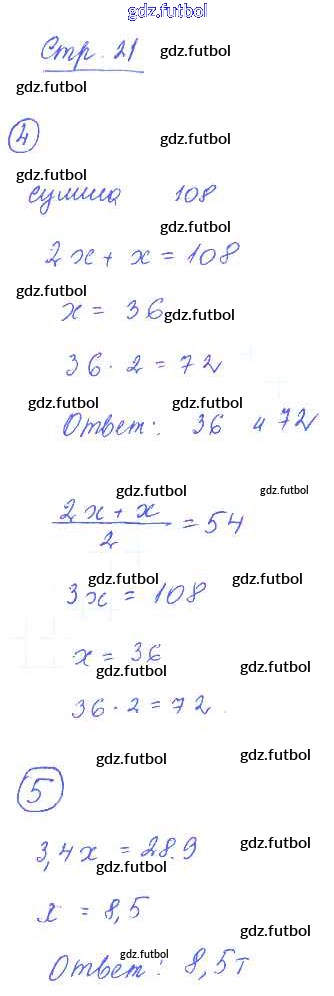 gdz.futbol
Стр. 21 gdz.futbol
gdz.futbol
4 gdz.futbol
gdz.futbol
сумма 108
gdz.futbol
2x + x = 108
gdz.futbol
x = 36 gdz.futbol
36 · 2 = 72
gdz.futbol gdz.futbol
Ответ: 36 и 72
gdz.futbol gdz.futbol
2x + x
/ 2 = 54
gdz.futbol gdz.futbol
3x = 108
x = 36
gdz.futbol gdz.futbol
36 · 2 = 72
gdz.futbol gdz.futbol
5
3,4x = 28.9
gdz.futbol gdz.futbol
x = 8,5
gdz.futbol gdz.futbol
Ответ: 8,5т